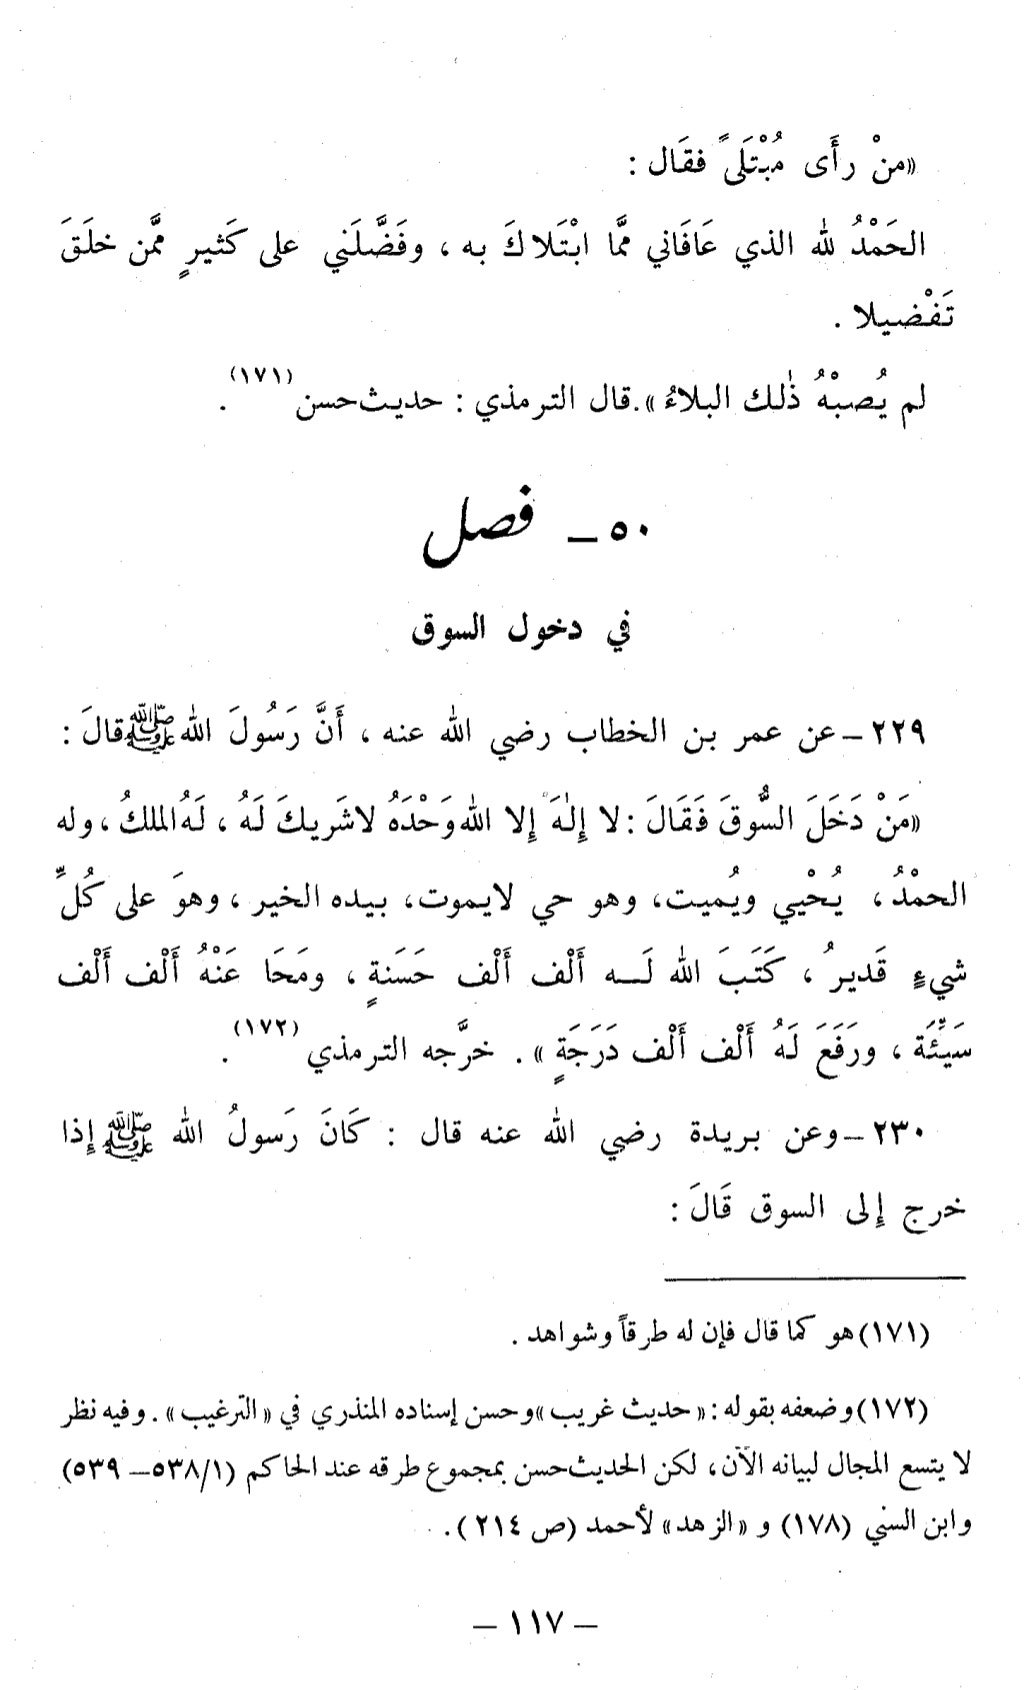 «منْ رأَى مُبْتَلَىً فقَال :
الحَمْدُ لله الذي عَافَاني ممَّا ابْتَلاكَ به ، وفَضَّلَني على كَثيرٍ ممَّن خلَقَ
تَفْضيلا .
لم يُصبْهُ ذٰلك البلاءُ» .قال الترمذي : حديث حسن (١٧١) .
٥٠ ـ فصل
في دخول السوق
٢٢٩ ـ عن عمر بن الخطاب رضي الله عنه ، أَنَّ رَسُولَ الله ﷺ قالَ :
«مَنْ دَخَلَ السُّوقَ فَقَالَ : لا إِلٰهَ إِلا الله وَحْدَهُ لا شَريكَ لَهُ ، لَهُ الملكُ ، وله
الحمْدُ ، يُحْيي ويُميت، وهو حي لايموت، بيده الخير ، وهوَ على كُلِّ
شيءٍ قَديرُ ، كَتَبَ الله لَـــه أَلْف أَلْف حَسَنةٍ ، ومَحَا عَنْهُ أَلْف أَلْف
سَيِّئَة ، ورَفَعَ لَهُ أَلْف أَلْف دَرَجَةٍ» . خرَّجه الترمذي (١٧٢) .
٢٣٠ ـ وعن بريدة رضي الله عنه قال : كَانَ رَسولُ الله ﷺ إِذا
خرج إِلى السوق قَالَ :
(١٧١) هو كما قال فإن له طرقاً وشواهد .
(١٧٢) وضعفه بقوله : «حديث غريب» وحسن إسناده المنذري في «الترغيب» . وفيه نظر
لا يتسع المجال لبيانه الآن، لكن الحديث حسن بمجموع طرقه عند الحاكم (٥٣٨/١ ـ ٥٣٩)
وابن السني (١٧٨) و «الزهد» لأحمد (ص ٢١٤) .
ـ ١١٧ ـ